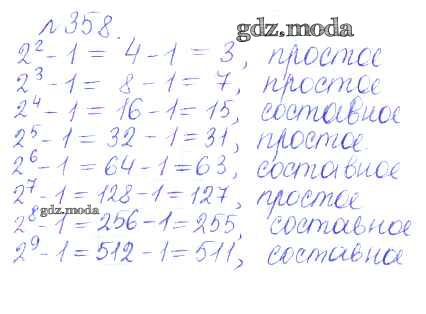 №358.
gdz.moda
2² - 1 = 4 - 1 = 3, простое
2³ - 1 = 8 - 1 = 7, простое
2⁴ - 1 = 16 - 1 = 15, составное
2⁵ - 1 = 32 - 1 = 31, простое.
2⁶ - 1 = 64 - 1 = 63, составное
2⁷ - 1 = 128 - 1 = 127, простое
gdz.moda
2⁸ - 1 = 256 - 1 = 255, составное
2⁹ - 1 = 512 - 1 = 511, составное